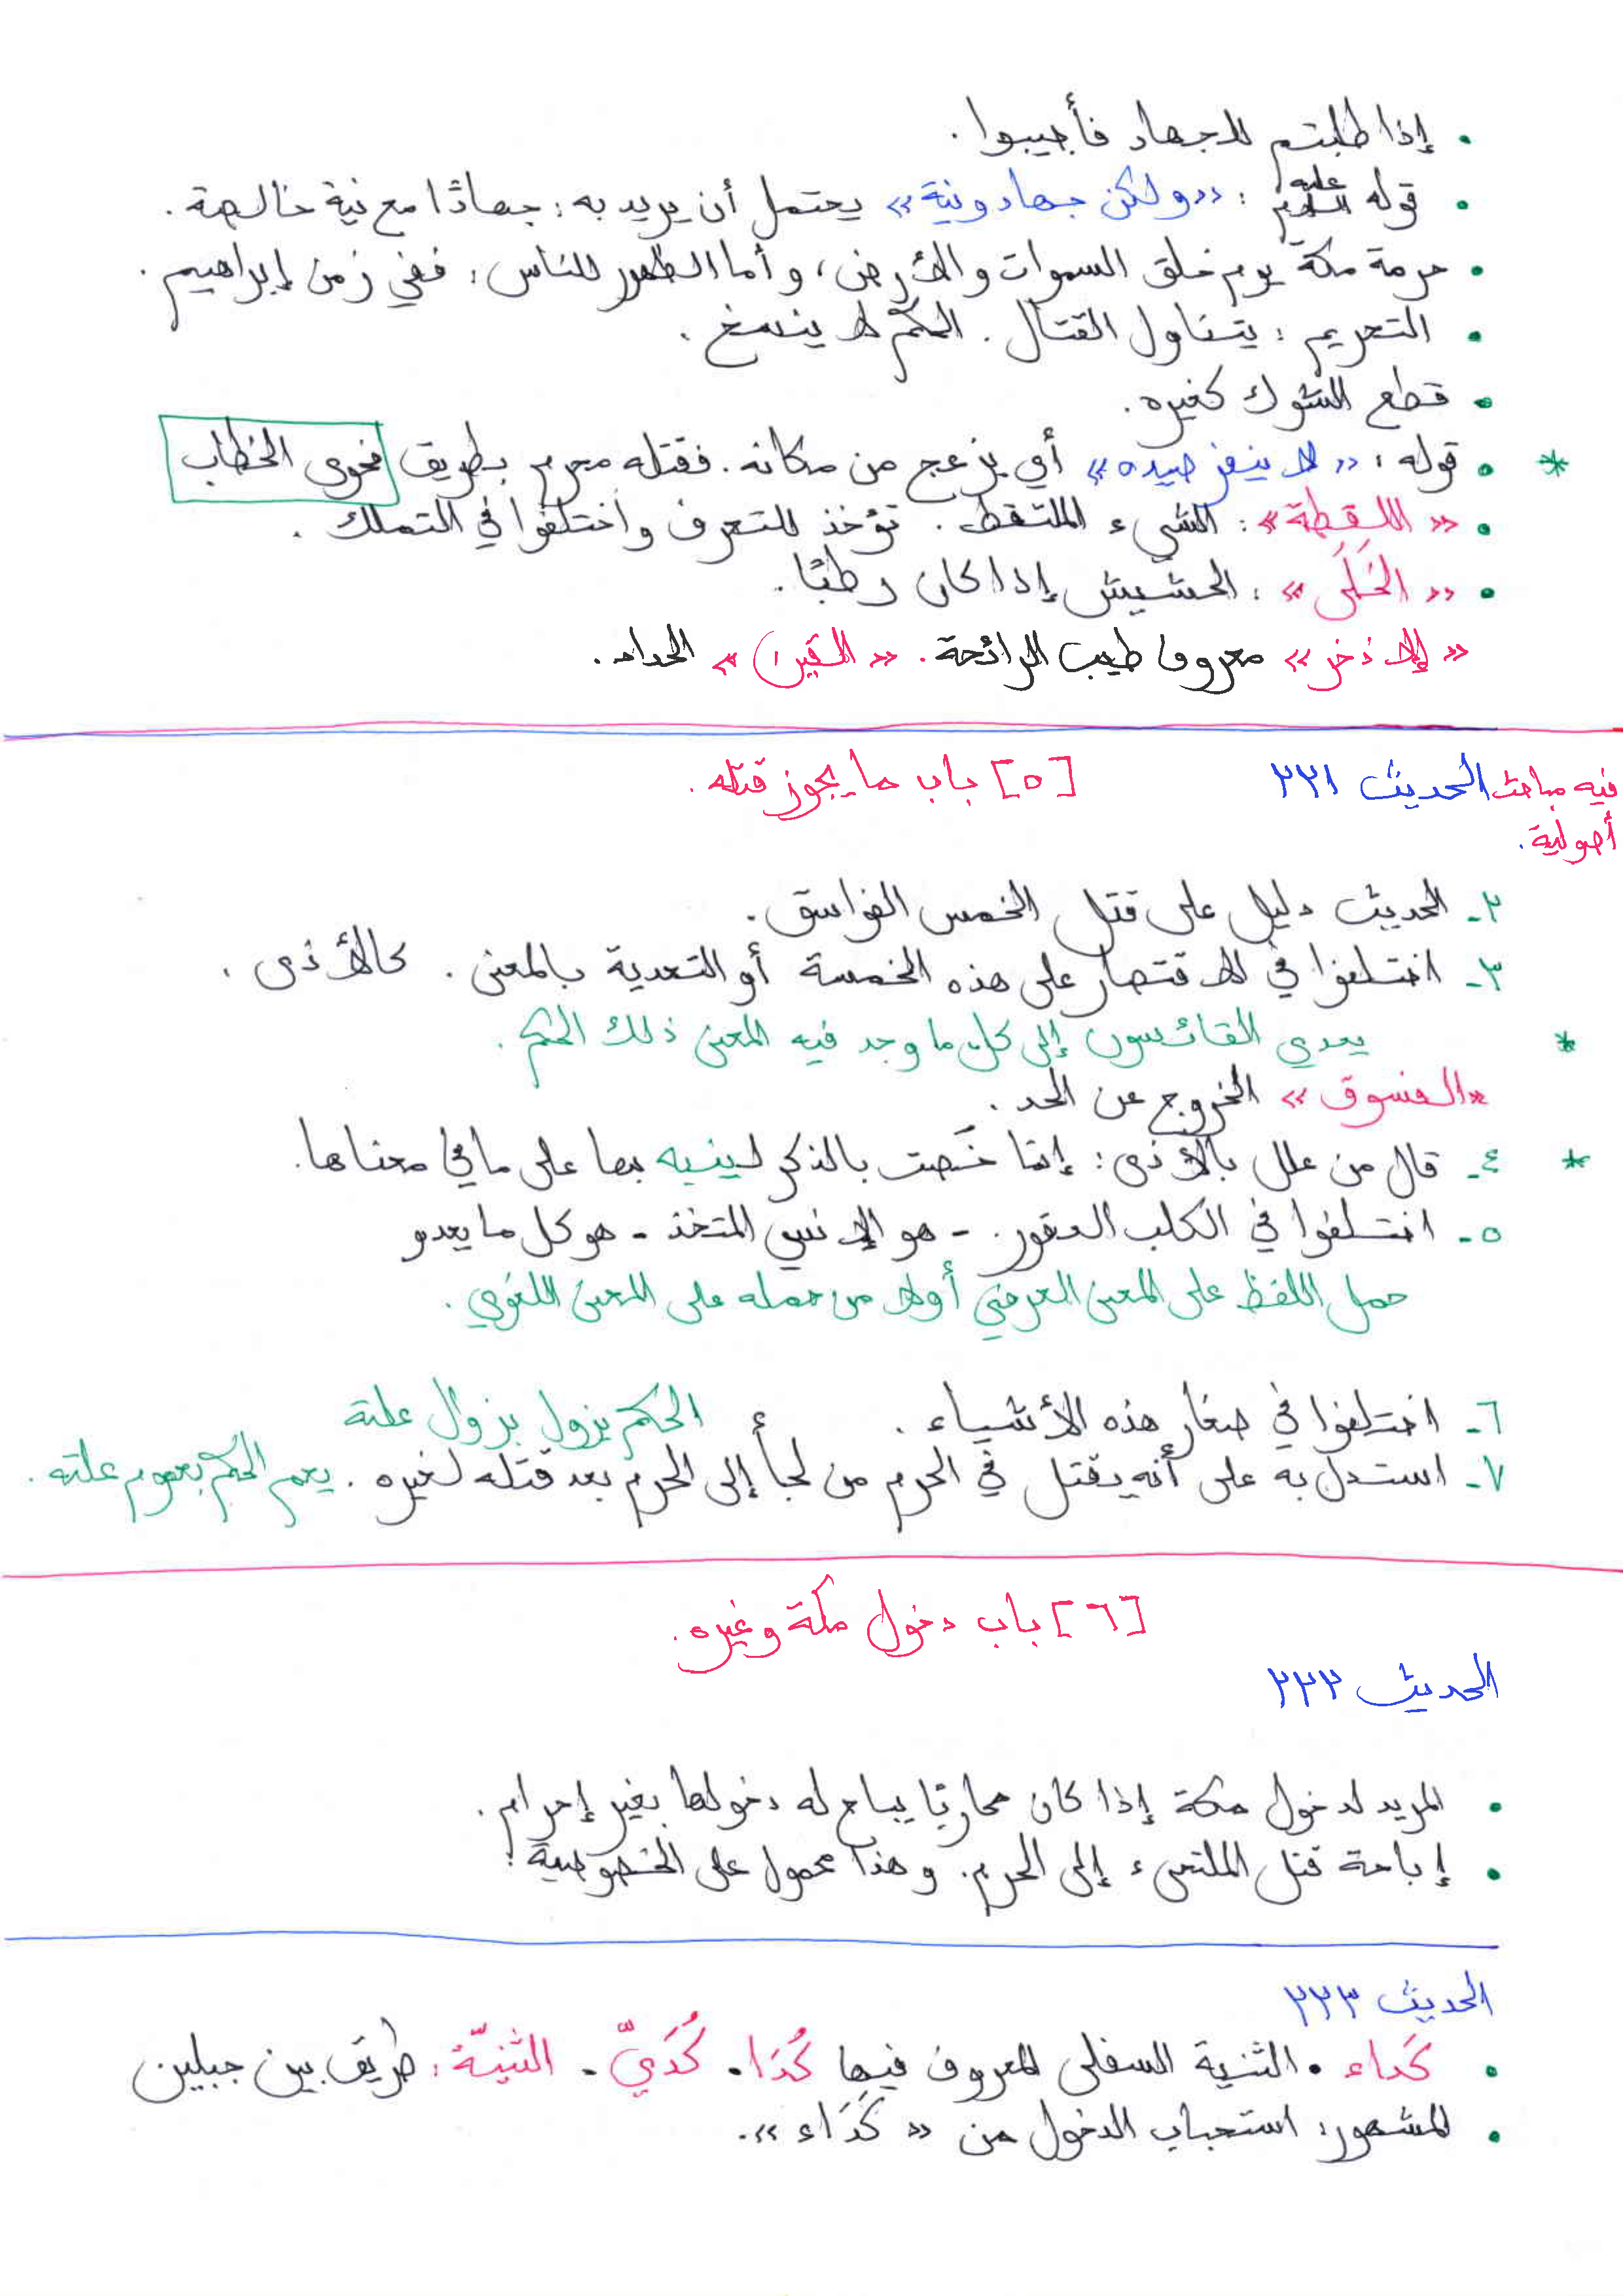 • إذا طلبتم للجهاد فأجيبوا.
• قوله عليه السلام: «ولكن جهاد ونية» يحتمل أن يريد به: جهادًا مع نية خالصة.
• حرمة مكة يوم خلق السموات والأرض، وأما الظهور للناس: ففي زمن إبراهيم.
• التحريم: يتناول القتال. الحكم لا ينسخ.
• قطع الشوك كغيره.
* • قوله: «لا ينفر صيده» أي يزعج من مكانه. فقتله محرم بطريق فحوى الخطاب
• «اللقطة»: الشيء الملتقط. تؤخذ للتعرف واختلفوا في التملك.
• «الخَلَى»: الحشيش إذا كان رطبًا.
«الإذخر» معروف طيب الرائحة. «القين» الحداد.
فيه مباحث أصولية. الحديث ٢٢١ [٥] باب ما يجوز قتله.
٢- الحديث دليل على قتل الخمس الفواسق.
٣- اختلفوا في الاقتصار على هذه الخمسة أو التعدية بالمعنى. كالأذى.
* يعدي القائسون إلى كل ما وجد فيه المعنى ذلك الحكم.
«الفسوق» الخروج عن الحد.
* ٤- قال من علل بالأذى: إنما خَصت بالذكر لينبه بها على ما في معناها.
٥- اختلفوا في الكلب العقور. - هو الإنسي المتخذ - هو كل ما يعدو
حمل اللفظ على المعنى العرفي أولا من حمله على المعنى اللغوي.
٦- اختلفوا في صغار هذه الأشياء. الحكم يزول بزوال علته
٧- استدل به على أنه يقتل في الحرم من لجأ إلى الحرم بعد قتله لغيره. يعم الحكم بعموم علته.
[٦] باب دخول مكة وغيره.
الحديث ٢٢٢
• المريد لدخول مكة إذا كان محاربًا يباح له دخولها بغير إحرام.
• إباحة قتل الملتجىء إلى الحرم. وهذا محمول على الخصوصية!
الحديث ٢٢٣
• كَداء. الثنية السفلى المعروف فيها كُدَا. كُدَيّ. الثنيّة: طريق بين جبلين
• المشهور: استحباب الدخول من «كَدَاء».